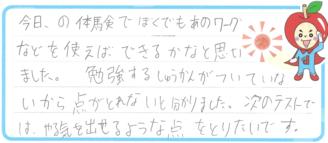 今日、の体験会でぼくでもあのワーク
などを使えばできるかなと思い
ました。 勉強するしゅうかんがついていな
いから点がとれないと分かりました。次のテストで
は、やる気を出せるような点をとりたいです。